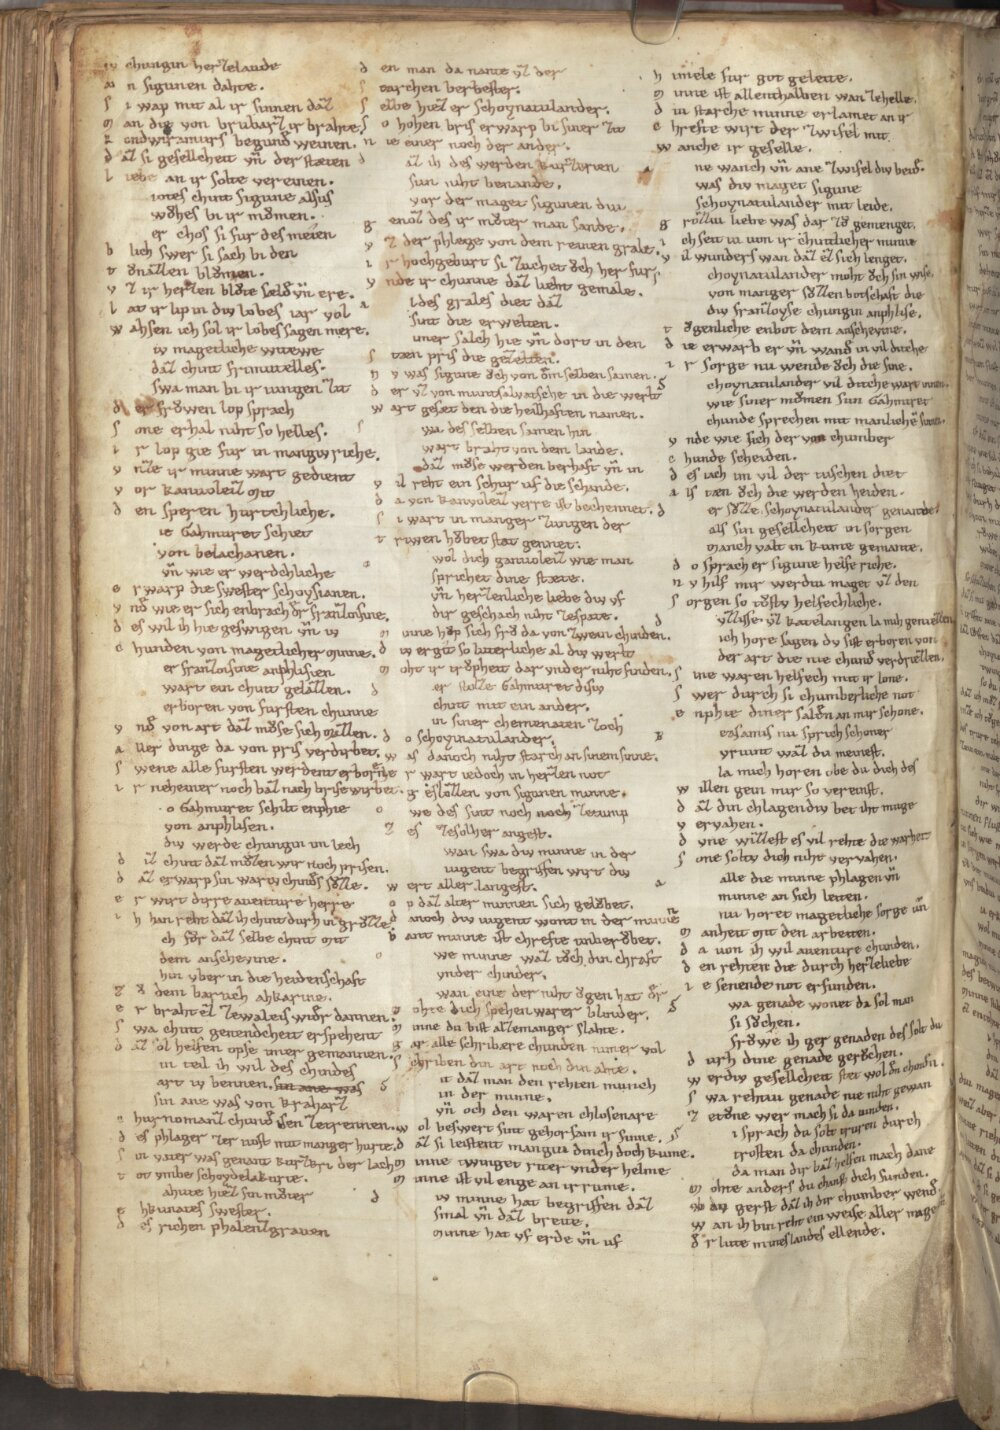 w chungin herzelaude
a n sigunen dahte.
s i wap mit al ir sinnen daz
m an die von brubarz ir brahte.
k ondwiramurs begund weinen.
d az si gesellcheit vñ der stæten
l iebe an ir solte vereinen.
iotes chint sigune alsus
wͦhes bi ir mͦmen.
er chos si fur des meien
b lich swer si sach bi den
t ͦnazzen blͦmen.
v z ir herzen blͦte sæld vñ ere.
l at ir lip in diu lobes iar vol
w ahsen ich sol ir lobes sagen mere.
iv magetliche witewe
daz chint frimutelles.
swa man bi ir iungen zit
d er frͦwen lop sprach
s one erhal niht so helles.
i r lop gie fur in mangiv riche.
v nze ir minne wart gedient
v or kanvoleiz mit
d en speren hurtchliche.
ie Gahmuret schiet
von belachanen.
vñ wie er werdchliche
e rwarp die swester schoysianen.
v nd wie er sich enbrach der franzoisine.
d es wil ih hie geswigen vñ iv
c hunden von magetlicher minne.
er franzoisine anphlisien
wart ein chint gelazzen.
erboren von fursten chunne
v nd von art daz mͦse sich mazzen.
a ller dinge da von pris verdirbet.
s wenne alle fursten werdent erborne
i r neheiner noch baz nach prise wirbet.
o Gahmuret schilt enphie
von anphlisen.
diu werde chungin im lech
d iz chint daz mͦzen wir noch prisen.
d az erwarp sin wariv chindes sͦzze.
e r wirt dirre aventure herre
i h han reht daz ih chint durh in grͦzze.
ch fͦr daz selbe chint mit
dem anschevine.
hin vber in die heidenschaft
z ͦ dem baruch ahkarine.
e r brahtez zewaleis wider dannen.
s wa chint genendcheit erspehent
d az sol helfen opse imer gemannen.
in teil ih wil des chindes
art iv bennen. sin ane was
sin ane was von graharz
c hurnomanz chund isen zetrennen.
d es phlager zer tiost mit manger hurte.
s in vater was genant kurzkri der lach
t ot vmbe schoydelakurte.
ahute hiez sin mͦter
e hkunates swester.
d es richen phalenzgraven
d en man da nante vz der
s tarchen berbester.
s elbe hiez er schoynatulander.
s o hohen bris erwarp bi siner zit
n ie einer noch der ander.
az ih des werden kurzkrien
sun niht benande.
vor der maget sigunen diu
g enoz des ir mͦter man sande.
v z der phlege von dem reinen grale.
i r hochgeburt si zuchet ͦch her fur.
v nde ir chunne daz lieht gemale.
a ldes grales diet daz
sint die erwelten.
imer salch hie vñ dort in den
s tæten pris die gezelten.
n v was sigune ͦch von dem selben samen.
d er vz von muntsalvatsche in die werlt
w art gesæt den die heilhaften namen.
wa des selben samen hin
wart braht von dem lande.
daz mͦse werden berhaft vñ in
v il reht ein schur uf die schande.
d a von kanvoleiz verre ist bechennet.
s i wart in manger zungen der
t riwen hͦbet stat gennet.
wol dich ganvoleiz wie man
sprichet dine stæte.
vñ herzenliche liebe diu vf
dir geschach niht zespate.
m inne hͦp sich frͦ da von zwein chinden.
d iv ergie so luterliche al diu werlt
m oht ir trͦpheit dar vnder niht finden.
er stolze Gahmuret disiv
chint mit ein ander.
in siner chemenaten zoch
d o schoynatulander.
w as dannoch niht starch an sinem sinne.
e r wart iedoch in herzen not
g eslozzen von sigunen minne.
we des sint noch noch zetump
z es zesolher angest.
wan swa diu minne in der
iugent begriffen wirt diu
w ert aller langest.
o p daz alter minnen sich gelͦbet.
d annoch diu iugent wont in der minne
b ant minne ist chrefte unberͦbet.
we minne waz tͦch din chraft
vnder chinder.
wan eine der niht ͦgen hat der
m ohte dich spehen warer blinder.
m inne du bist alzemanger slahte.
g ar alle schribære chunden nimer vol
s chriben din art noch din ahte.
it daz man den rehten munich
in der minne.
vñ och den waren chlosenare
w ol beswert sint gehorsam ir sinne.
d az si leistent mangiu dinch doch kume.
m inne twinget riter vnder helme
m inne ist vil enge an ir rume.
iv minne hat begriffen daz
smal vñ daz breite.
minne hat vf erde vñ uf
h imele fur got geleite.
m inne ist allenthalben wan zehelle.
d iu starche minne erlamet an ir
c hrefte wirt der zwifel mit
w anche ir geselle.
ne wanch vñ ane zwifel div beid.
was diu maget sigune
schoynatulander mit leide.
g rozziu liebe was dar zͦ gemenget.
i ch seit iu von ir chintlicher minne
v il wunders wan daz ez sich lenget.
choynatulander moht ͦch sin wise.
von manger sͦzzen botschaft die
diu franzoyse chungin anphlise.
t ͦgenliche enbot dem anschevine.
d ie erwarb er vñ wand in vil dicke
i r sorge nu wende ͦch die sine.
choynatulander vil dicke wart innen.
wie siner mͦmen sun Gahmuret
chunde sprechen mit manlichen sinnen.
v nde wie sich der von chumber
c hunde scheiden.
d es iach im vil der tuschen diet
a ls tæn ͦch die werden heiden.
er sͦzze schoynatulander genande
als sin gesellcheit in sorgen
manich valt in kume gemante.
d o sprach er sigune helfe riche.
n v hilf mir werdiu maget vz den
s orgen so tͦstv helfechliche.
vzisse vz katelangen la mih geniezzen
ich hore sagen du sist erboren von
der art die nie chund verdriezzen.
s ine waren helfech mit ir lone.
s wer durch si chumberliche not
e nphie diner sælden an mir schone.
easamis nu sprich schoner
vriunt waz du meinest.
la mich horen obe du dich des
w illen gein mir so vereinst.
d az din chlagendiv bet iht muge
v ervahen.
d vne willest es vil rehte die warheit
s one soltv dich niht vervahen.
alle die minne phlagen vñ
minne an sich leiten.
nu horet magetliche sorge vñ
m anheit mit den arbeiten.
d a von ih wil aventure chunden.
d en rehten die durch herzeliebe
i e senende not erfunden.
wa genade wonet da sol man
si sͦchen.
frͦwe ih ger genaden des solt du
d urh dine genade gerͦchen.
w erdiv gesellcheit stet wol den chinden.
s wa rehtiu genade nie niht gewan
z etͦne wer mach si da vinden.
i sprach du solt truren durch
trosten da chunden.
da man dir baz helfen mach dane
m ohte anders du chanst dich sunden.
op du gerst daz ih dir chumber wende
w an ih bin reht ein weise aller mage
ͦ r lute minneslandes ellende.